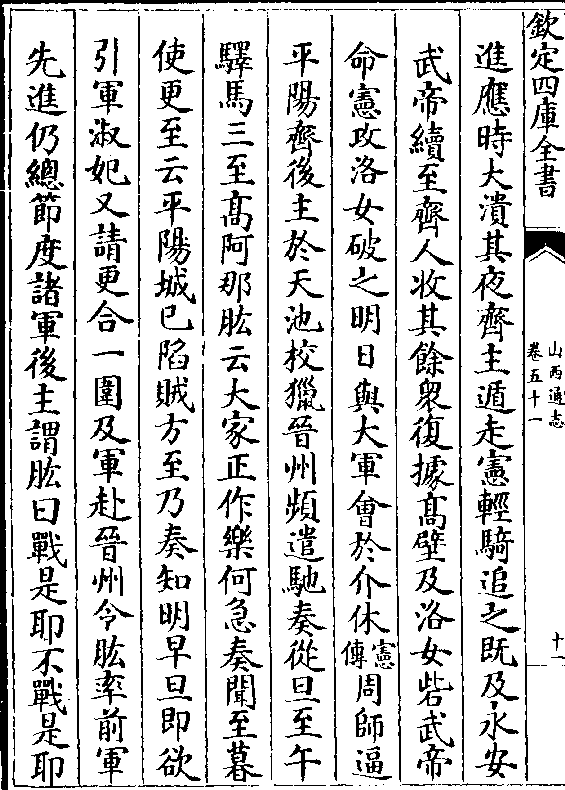 欽定四庫全書
山西通志
卷五十一
十一
進應時大潰其夜齊主遁走憲輕騎追之既及永安
武帝續至齊人收其餘衆復據髙壁及洛女砦武帝
命憲攻洛女破之明日與大軍會於介休憲傳周師逼
平陽齊後主於天池校獵晉州頻遣馳奏從旦至午
驛馬三至髙阿那肱云大家正作樂何急奏聞至暮
使更至云平陽城已陷賊方至乃奏知明早旦即欲
引軍淑妃又請更合一圍及軍赴晉州令肱率前軍
先進仍總節度諸軍後主謂肱曰戰是耶不戰是耶